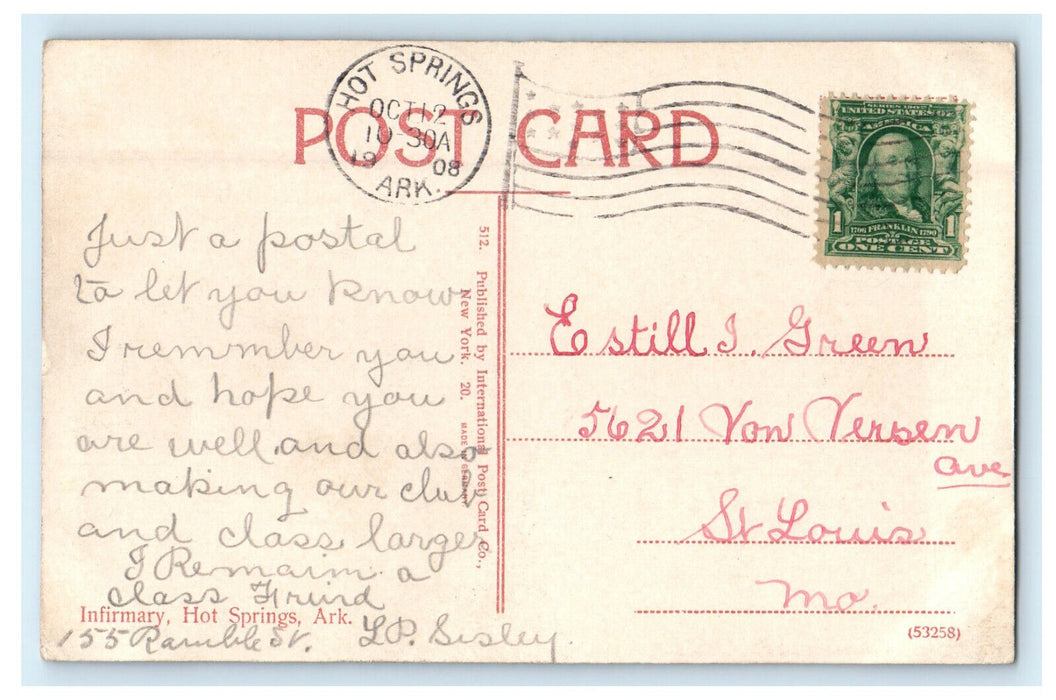 POST CARD
HOT SPRINGS
OCT 12
10-30A
1908
ARK.
SERIES 1902
UNITED STATES OF
AMERICA
1 1
1706 FRANKLIN 1790
POSTAGE
ONE CENT
Just a postal
to let you know
I remmber you
and hope you
are well and also
making our club
and class larger
I Remain a
class Friend
Infirmary, Hot Springs, Ark.
155 Ramble St. L.P. Sisley.
512. Published by International Post Card Co.,
New York. 20. MADE IN GERMANY
Estill I. Green
5621 Von Versen
ave
St Louis
Mo.
(53258)